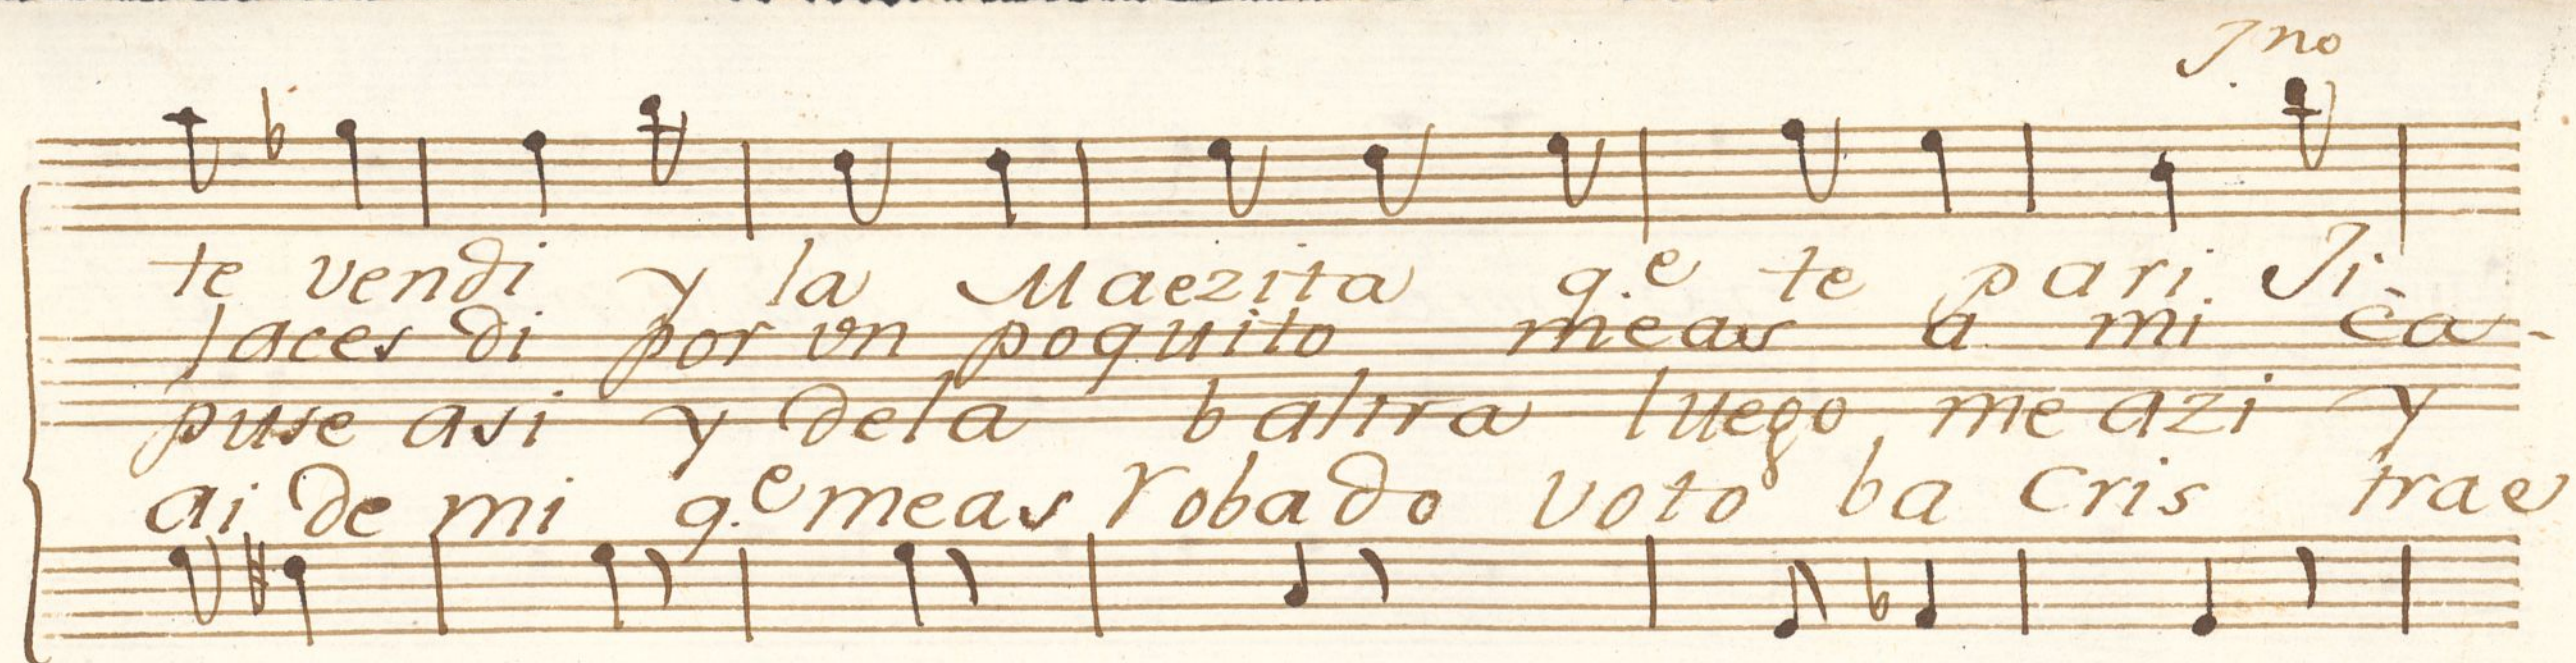 Jno
te vendi y la Maezita q.e te pari Ji-
laces di por vn poquito meas a mi ca-
puse asi y dela luego me azi y
ai de mi q.e meas robado voto ba Cris trae